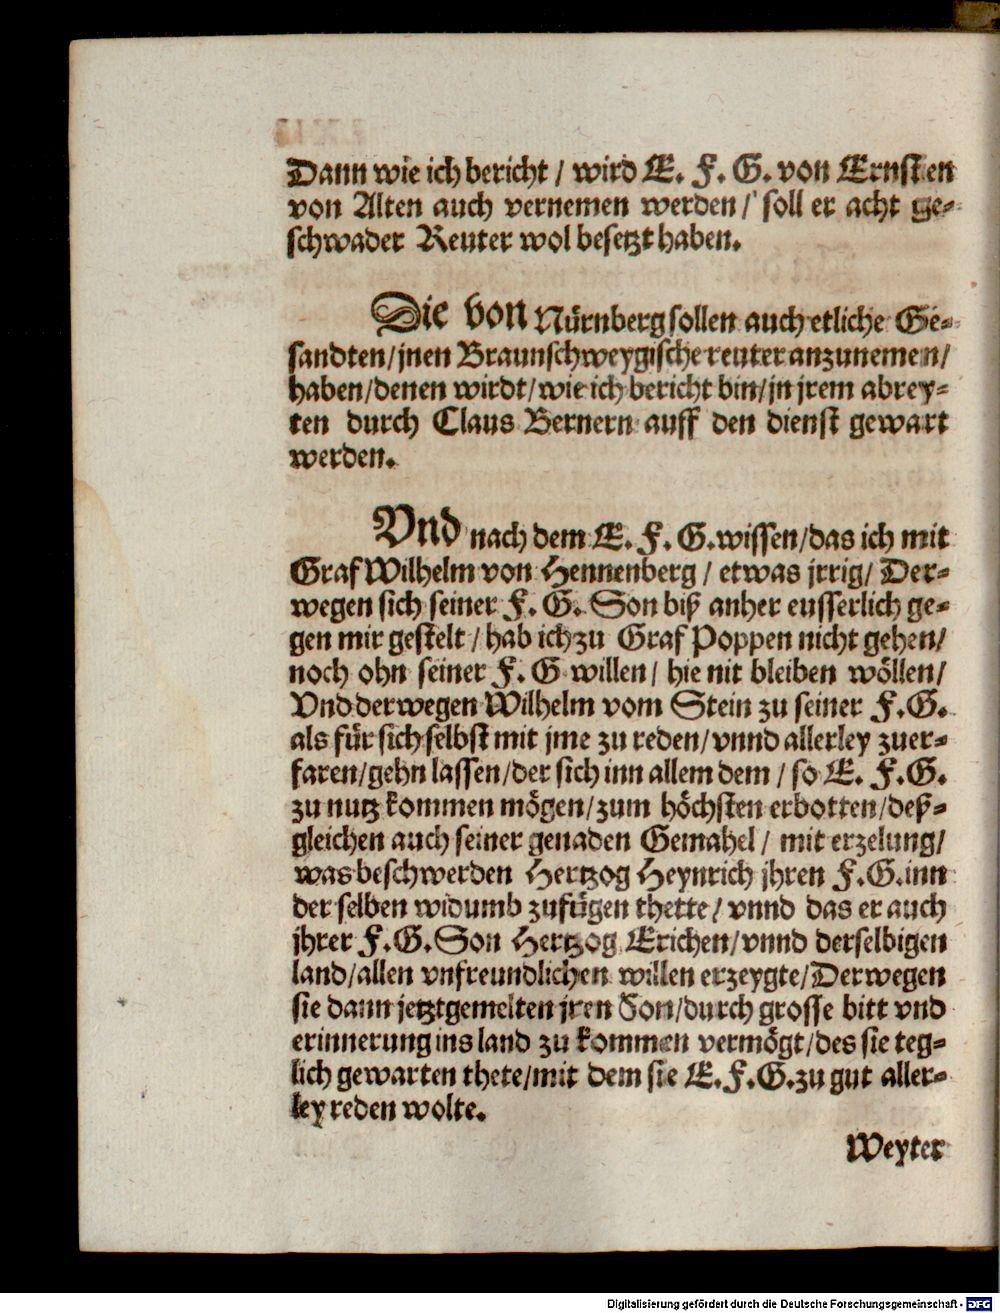 Dann wie ich bericht / wird E. F. G. von Ernsten
von Alten auch vernemen werden / soll er acht ge-
schwader Reuter wol besetzt haben.
Die von Nürnberg sollen auch etliche Ge-
sandten / jnen Braunschweygische reuter anzunemen /
haben / denen wirdt / wie ich bericht bin / jn jrem abrey-
ten durch Claus Bernern auff den dienst gewart
werden.
Vnd nach dem E. F. G. wissen / das ich mit
Graf Wilhelm von Hennenberg / etwas jrrig / Der-
wegen sich seiner F. G. Son biß anher eusserlich ge-
gen mir gestelt / hab ich zu Graf Poppen nicht gehen /
noch ohn seiner F. G willen / hie nit bleiben wöllen /
Vnd derwegen Wilhelm vom Stein zu seiner F. G.
als für sich selbst mit jme zu reden / vnnd allerley zuer-
faren / gehn lassen / der sich inn allem dem / so E. F. G.
zu nutz kommen mögen / zum höchsten erbotten / deß-
gleichen auch seiner genaden Gemahel / mit erzelung /
was beschwerden Hertzog Heynrich jhren F. G. inn
der selben widumb zufügen thette / vnnd das er auch
jhrer F. G. Son Hertzog Erichen / vnnd derselbigen
land / allen vnfreundlichen willen erzeygte / Derwegen
sie dann jetztgemelten jren Son / durch grosse bitt vnd
erinnerung ins land zu kommen vermögt / des sie teg-
lich gewarten thete / mit dem sie E. F. G. zu gut aller-
ley reden wolte.
Weyter
Digitalisierung gefördert durch die Deutsche Forschungsgemeinschaft - DFG